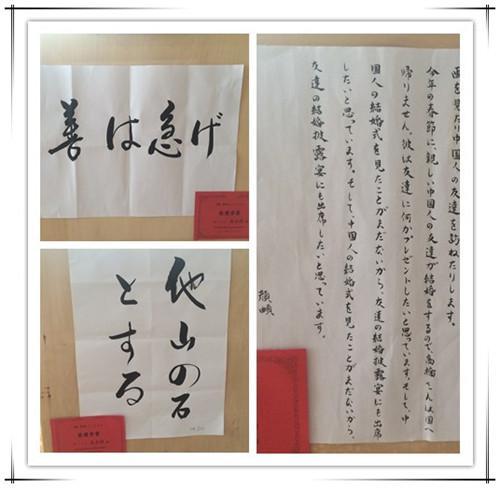 善は急げ
他山の石
とする
画を見たり中国人の友達を訪ねたりします。
今年の春節に、親しい中国人の友達が結婚をするので高橋さんは国へ
帰りません。彼は友達に何かプレゼントしたいと思っています。そして、中
国人の結婚式を見たことがまだないから、友達の結婚披露宴にも出席
したいと思っています。そして、中国人の結婚式を見たことがまだないから、
友達の結婚披露宴にも出席したいと思っています。